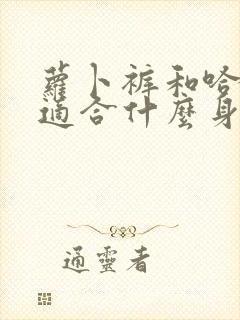 蘿卜裤和哈
適合什麼身
通靈者